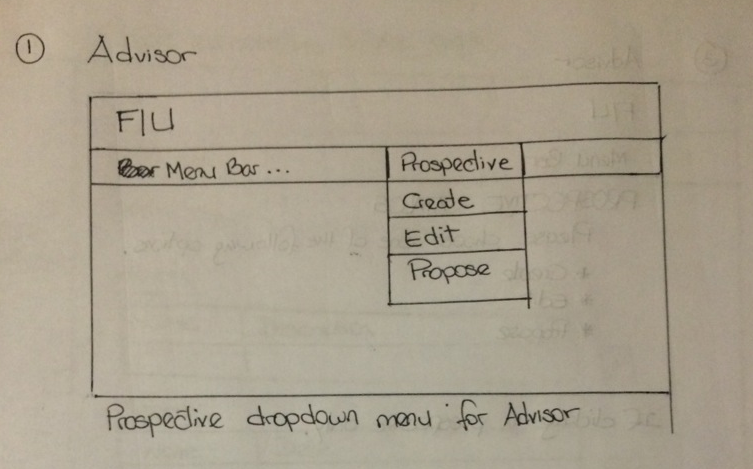 ① Advisor
FIU
Menu Bar... Prospective
Create
Edit
Propose
Prospective dropdown menu for Advisor